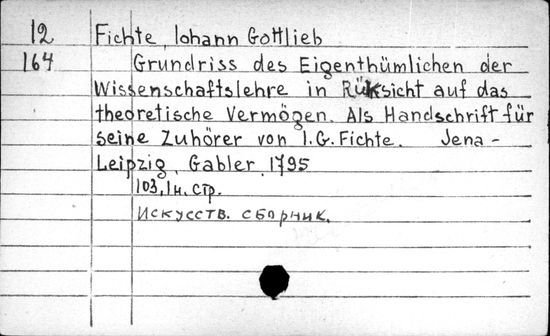 12 Fichte, Iohann Gottlieb
164 Grundriss des Eigenthümlichen der
Wissenschaftslehre in Rüksicht auf das
theoretische Vermögen. Als Handschrift für
seine Zuhörer von I.G.Fichte. Jena-
Leipzig, Gabler, 1795
103, 1 н. стр.
Искусств. сборник.